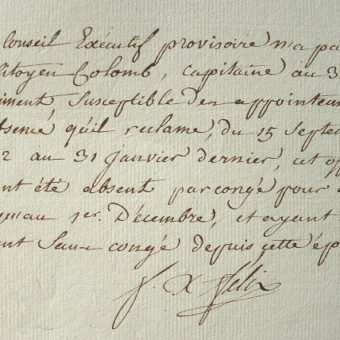 Conseil Exécutif provisoire n'a pa
itoyen Colomb, capitaine au 3
iment, susceptible des appointem
bsence, qu'il reclame, du 15 Septem
2 au 31 janvier dernier, et
nt été absent par congé pour
qu'au 1er. Décembre, et ayant
nt sans congé depuis cette ép
f. X Felix